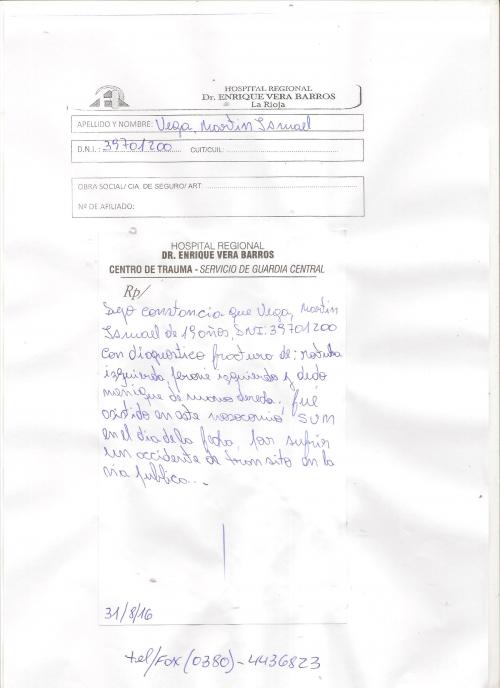 HOSPITAL REGIONAL
Dr. ENRIQUE VERA BARROS
La Rioja
APELLIDO Y NOMBRE: Vega, Martin Ismael
D.N.I.: 39701200 CUIT/CUIL:
OBRA SOCIAL/ CIA. DE SEGURO/ ART:
Nº DE AFILIADO:
HOSPITAL REGIONAL
DR. ENRIQUE VERA BARROS
CENTRO DE TRAUMA - SERVICIO DE GUARDIA CENTRAL
Rp/
Dejo constancia que Vega, Martin
Ismael de 19 años, DNI: 39701200
con diagnostico fractura de: rotula
izquierda, perone izquierdo y dedo
meñique de mano derecha, fué
asistido en este nosocomio
en el dia de la fecha, por sufrir
un accidente de transito en la
via publica...
31/8/16
tel/FOX (0380)-4436823